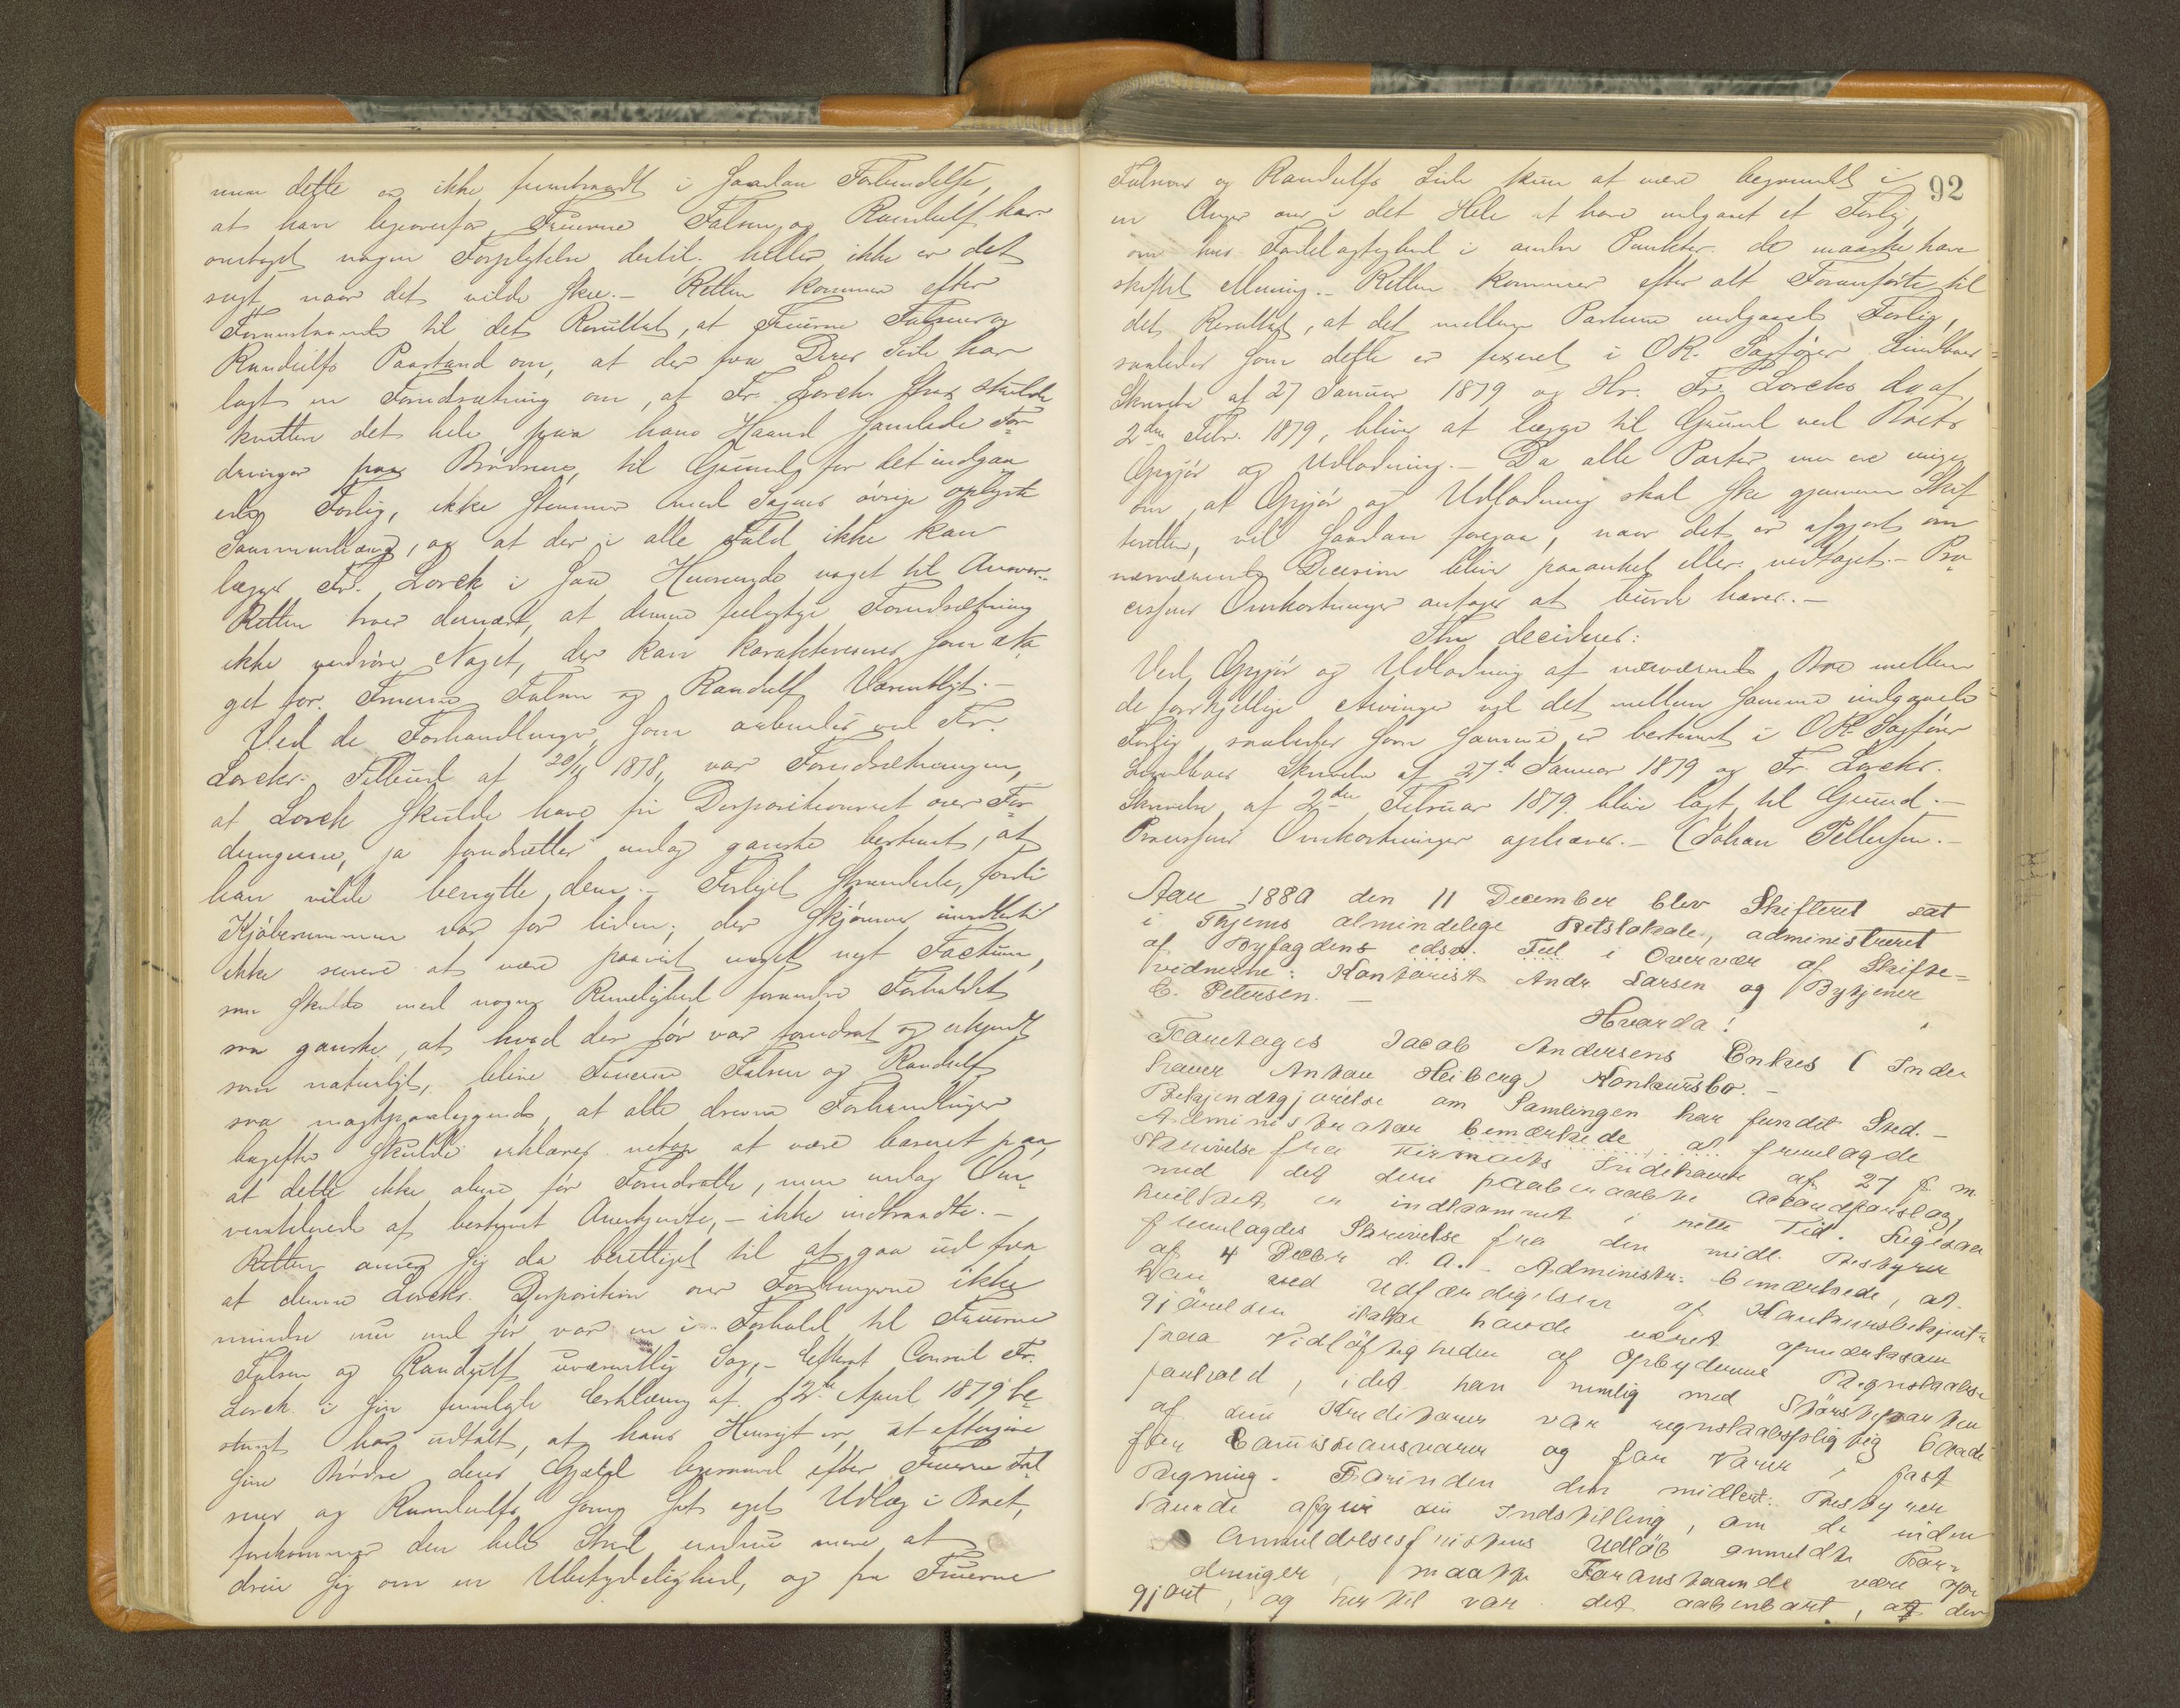 men dette er ikke fremkommet i saadan Forbindelse,
at han ligeoverfor Fruerne Falsen og Randulf har
overtaget nogen Forpligtelse dertil. heller ikke er det
sagt, naar det vilde ske. – Retten kommer efter
Foranstaaende til det Resultat, at Fruerne Falsens og
Randulfs Paastand om, at der fra Deres Side har
lagt en Forudsætning om, at Fr. Lorck strax skulde
kvittere det hele paa hans Haand samlede For-
dringer paa Brødrene, til Grund for det indgaa
ede Forlig, ikke stemmer med Sagens øvrige oplyste
Sammenhæng, og at der i alle Fald ikke kan
lægges Fr. Lorck i saa Henseende noget til Ansvar.
Retten troer dernæst, at denne feilagtige Forudsætning
ikke vedrører Noget, der kan karakteriseres som no
get for Fruerne Falsen og Randulf Væsentligt. –
Ved de Forhandlinger, som aabnedes ved Fr.
Lorcks Tilbud af 20/11 1878, var Forudsætningen,
at Lorck skulde have fri Dispositionsret over For-
dringerne, ja forudsættes endog ganske bestemt, at
han vilde benytte dem. – Forliget strandede, fordi
Kjøbesummen var for liden; der skjønnes imidlertid
ikke senere at være paavist noget nyt Factum,
som skulde med nogen Rimelighed forandre Forholdet
saa ganske, at hvad der før var forudsat og erkjendt
som naturligt, bliver Fruerne Falsen og Randulf
saa magtpaaliggende, at alle drevne Forhandlinger
bagefter skulde erklæres netop at være baseret paa,
at dette ikke alene før Forudsatte, men endog Om-
ventilerede af bestemt Anerkjendte, – ikke indtraadte. –
Retten anseer sig da berettiget til at gaa ud fra
at denne Lorcks Disposition over Fordringerne ikke
mindre nu end før var en i Forhold til Fruerne
Falsen og Randulf uvæsentlig Sag, – Efterat Consul Fr.
Lorck i sin fremlagte Erklæring af 12te April 1879 be
stemt har udtalt, at hans Hensigt er, at eftergive
sine Brødre deres Gjæld ligesaavel efter Fruerne Fal
sens og Randulfs som sit eget Udlæg i Boet,
forekommer den hele Strid endnu mere at
dreie sig om en Ubetydelighed, og fra Fruerne
92
Falsens og Randulfs Side kun at være begrundet i
en Anger over i det Hele at have indgaaet et Forlig,
om hvis Fordelagtighed i andre Punkter de maaske have
skiftet Mening. – Retten kommer efter alt Foranførte til
det Resultat, at det mellem Parterne indgaaet Forlig,
saaledes som dette er fixeret i OR. Sagfører Lindboes
Skrivelse af 27 Januar 1879 og Hr. Fr. Lorcks do af
2den Febr. 1879, bliver at lægge til Grund ved Boets
Opgjør og Udlodning. – Da alle Parter nu ere enige
om, at Opgjør og Udlodning skal ske gjennem Skif
teretten, vil saadan foregaa, naar det er afgjort om
nærværende Decision bliver paaanket eller vedtaget. – Pro
cessens Omkostninger antages at burde hæves. –
Thi decideres:
Ved Opgjør og Udlodning af nærværende Bo mellem
de forskjellige Arvinger vil det mellem samme indgaaede
Forlig saaledes som samme er bestemt i OR. Sagfører
Lindboes Skrivelse af 27de Januar 1879 og Fr. Lorcks
Skrivelse af 2den Februar 1879 blive lagt til Grund. –
Processens Omkostninger ophæves. – (Johan Pettersen. –
Aar 1880 den 11 December blev Skifteret sat
i Thjems almindelige Retslokale, administreret
af Byfogdens edsv. Fuld. i Overvær af Skifte=
vidnerne: Kontorist Andr Larsen og Bytjener
E. Petersen. –
Hvorda!
Foretages Jacob Andersens Enkes (Inde
haver Anton Heiberg) Konkursbo. –
Bekjendtgjørelse om Samlingen har fundet Sted. –
Administrator bemærkede, at fremlagde
Skrivelse fra Firmaets Indehaver af 27 f. m.
med det deri paaberaabte Akkordforslag,
hvilket er indkommet i rette Tid. Ligesaa
fremlagdes Skrivelse fra den midl. Bestyrer
af 4 Decbr d. A. – Administr. bemærkede, at
han ved Udfærdigelsen af Konkursbekjendt=
gjørelsen ikke havde været opmærksom
paa Vidløftigheden af Opbydernes Regnskabs
forhold, idet han nemlig med Størsteparten
af sine Kreditorer var regnskabspligtig baade
for Commissionsvarer og for Varer i fast
Regning. Forinden den midlert. Bestyrer
kunde afgive sin Indstilling, om de inden
Anmeldelsesfristens Udløb anmeldte For=
dringer, maatte Foranstaaende være op
gjort, og hertil var det aabenbart, at den